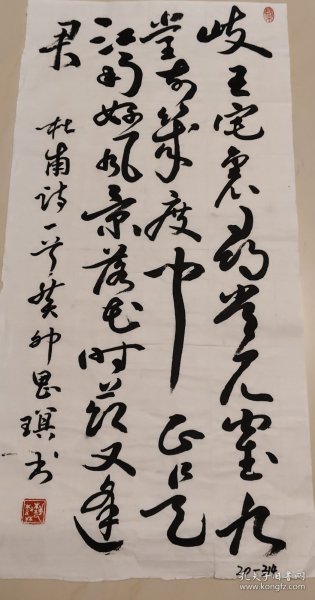 岐王宅裏尋常見崔九
堂前幾度聞正是
江南好風景落花時節又逢
君
杜甫詩一首癸卯書
孔夫子旧书网